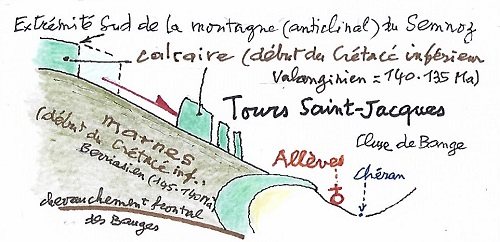 Extrémité Sud de la montagne (anticlinal) du Semnoz
calcaire (début du Crétacé inférieur
Valanginien = 140-135 Ma)
Tours Saint-Jacques
marnes
(début du Crétacé inf.:
Berriasien (145-140 Ma)
Allèves
Cluse de Bange
Chéran
chevauchement frontal
des Bauges